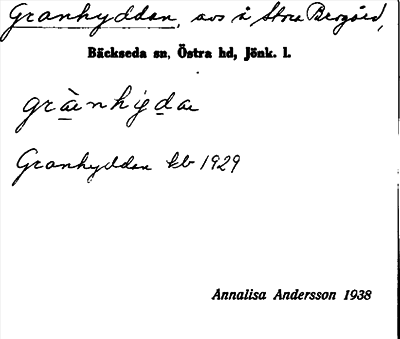 Granhyddan, avs å Stora Bergård,
Bäckseda sn, Östra hd, Jönk. l.
grànhyda
Granhyddan kb 1929
Annalisa Andersson 1938